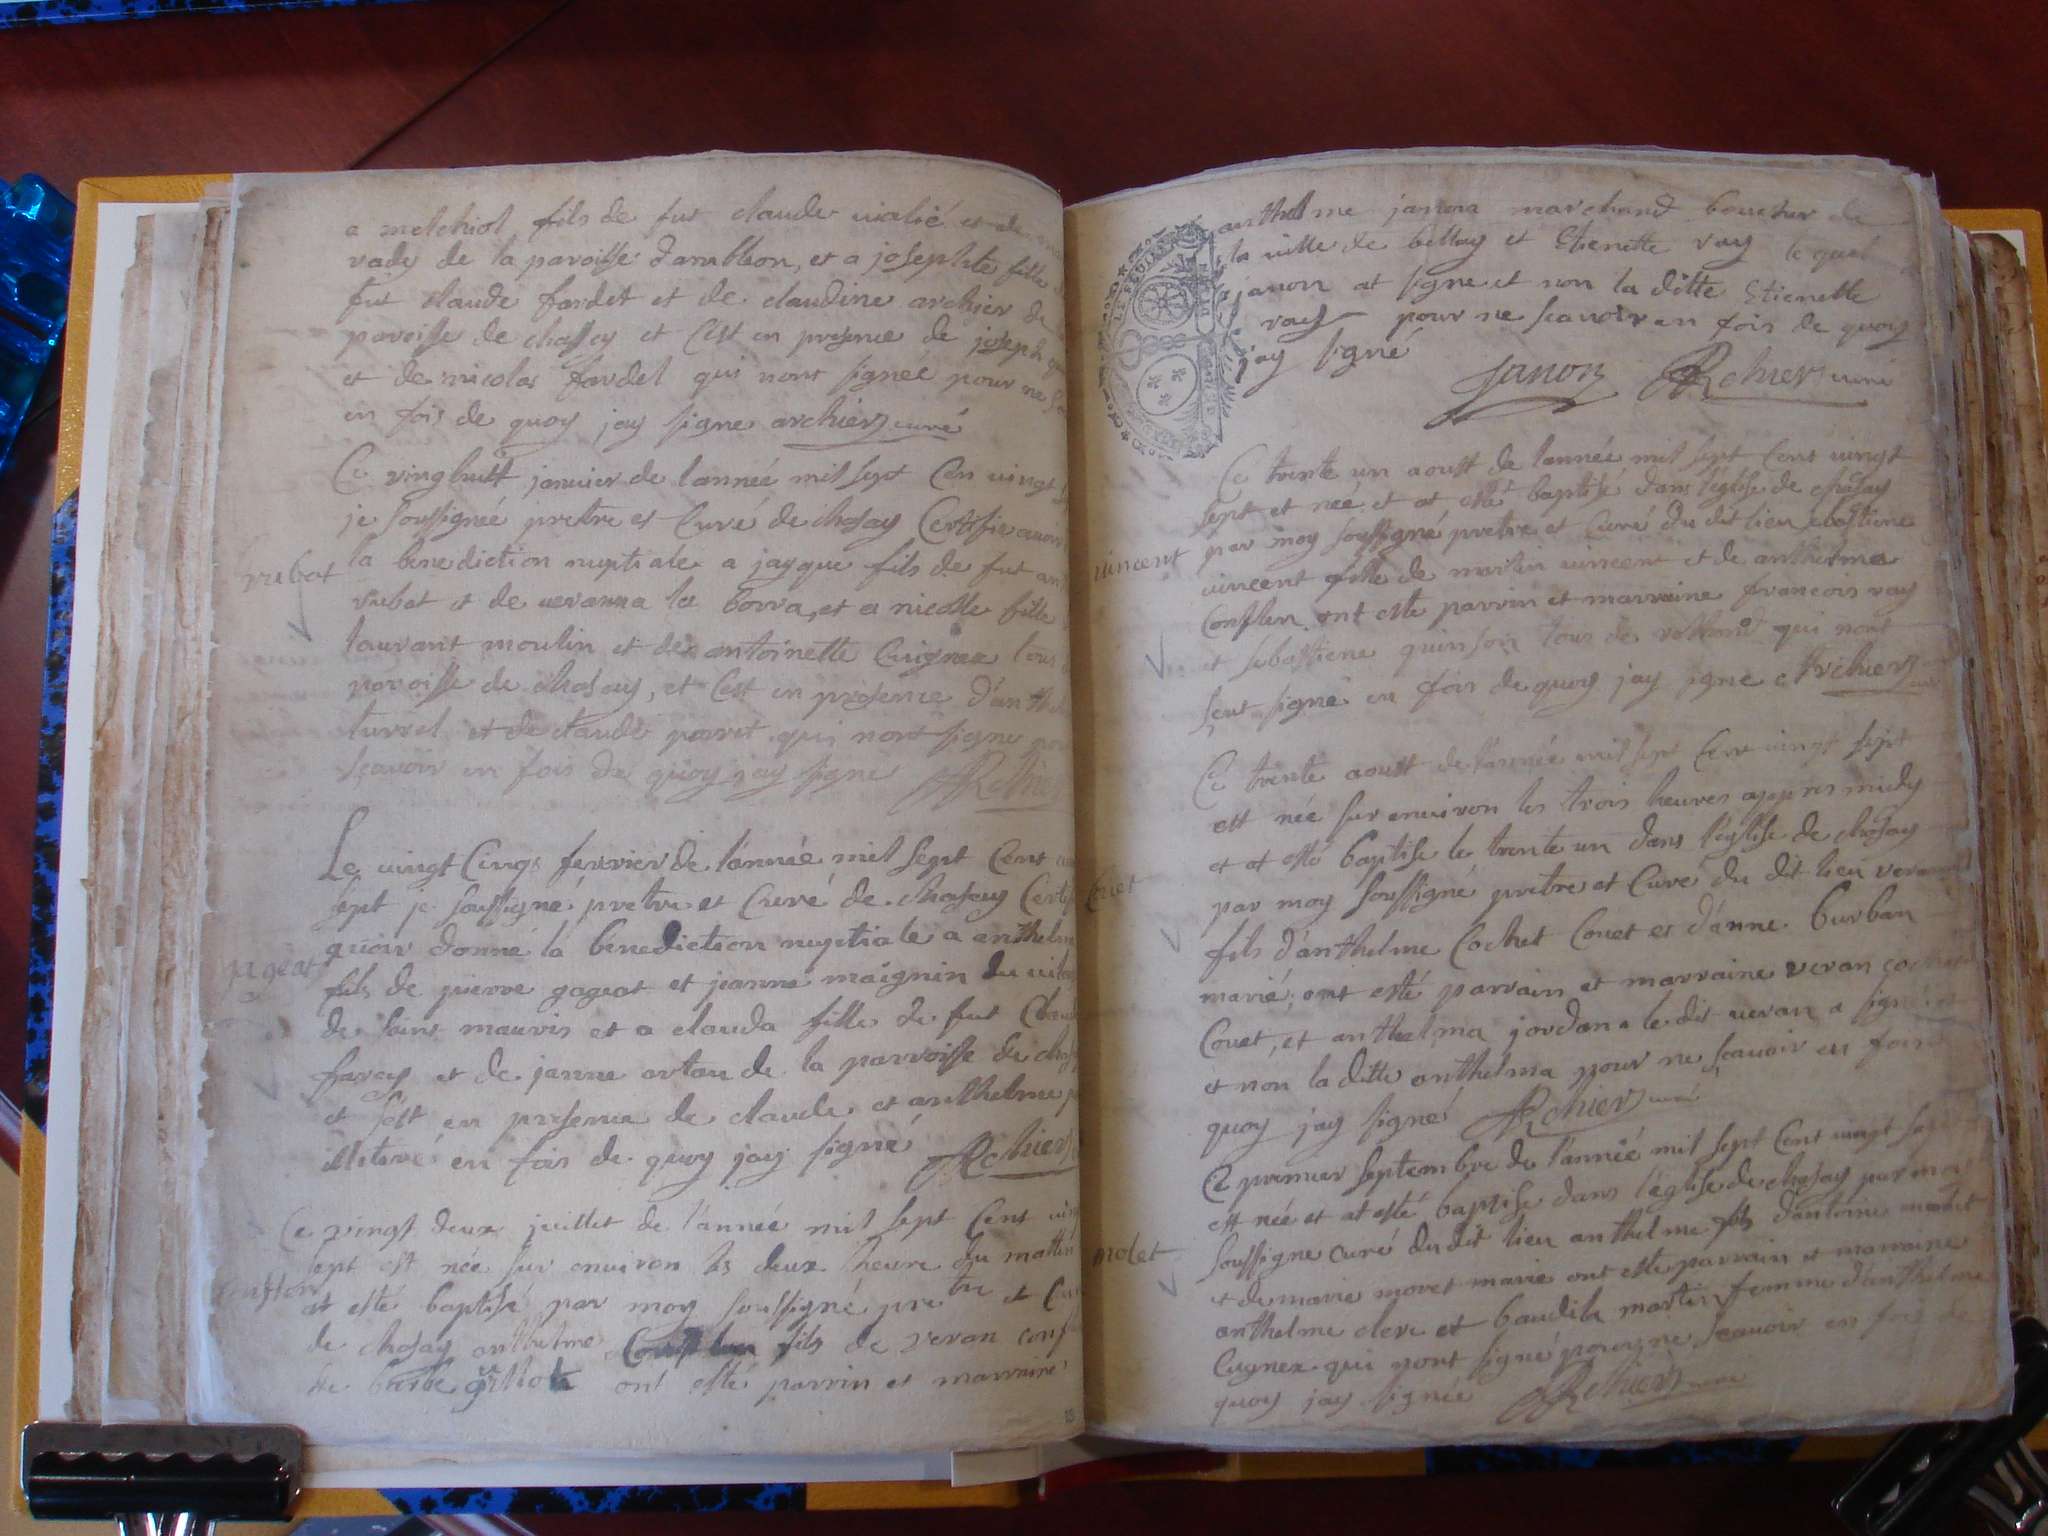 a melchiol fils de fut claude vialié et de
rady de la paroisse dambleon, et a josephte fille
fut claude fardet et de claudine archier de
paroisse de chasey et Cest en presence de joseph
et de nicolas fardel qui nont signéé pour ne
en fois de quoy jay signe archier curé
Ce vinghuitt janvier de lannéé mil sept Cen vingt
je soussignéé pretre et Curé de chosay Certifie avoir
rubat
la benediction nuptiale a jayque fils de fut
rubat et de veranna la borra, et a nicolle fille
laurant moulin et de antoinette Cuignex tous
paroisse de chosay, et Cest en presence d'anthe
turrel et de claude parret qui nont signe
sçavoir en fois de quoy jay signe Archier
Le vingt Cinqs fevrier de l'annéé mil sept Cent
sept je soussigné pretre et Curé de chosay Certif
avoir donné la benediction nuptiale a anthelm
gageat
fils de pierre gageat et jeanne maignin du
de saint mauris et a clauda fille de fut Claude
faray et de janne artau de la parroisse de
et sest en presence de claude et anthelme
illeteré en fois de quoy jay signé Archier
Ce vingt deux juillet de l'annéé mil sept Cent
sept est néé sur environ les deux heure du mattin
at esté baptisé par moy soussigné pretre et Cur
de chosay anthelme fils de veran conf
de barbe ont esté parrin et marraine
anthelme janon marchand boucher de
la ville de bellay et Etienette ray le quel
janon at signe et non la ditte Etienette
ray pour ne scavoir en fois de quoy
jay signé
Janon Archier curé
Ce trente un aoust de lannéé mil sept Cent vingt
sept et néé et at esté baptisé dans l'église de chosay
par moy soussigné pretre et Curé du dit lieu ebastiene
vincent
vincent fille de martin vincent et de anthelma
Conflen ont esté parrin et marraine francois ray
et sebastiene quinson tous de qui nont
seut signé en fois de quoy jay signe Archier
Ce trente aoust de l'année mil sept Cent vingt sept
est néé sur environ les trois heures appres midy
et at esté baptise le trente un dans l'église de chosay
Couet
par moy soussigné pretre et Curé du dit lieu veran
fils d'anthelme Cochet Couet et d'anne burban
marié, ont esté parrain et marraine veran cochet
Couet, et anthelma jordan le dit veran a signé
et non la ditte anthelma pour ne sçavoir en fois
quoy jay signé Archier curé
Ce premier septembre de l'annéé mil sept Cent vingt sept
est néé et at esté baptise dans l'église de chosay par moy
soussigne curé du dit lieu anthelme fils d'antoine molet
molet
et de marie moret marié ont esté parrain et marraine
anthelme clere et baudile martin femme d'anthelme
Cugnex qui nont signé pour ne scavoir en fois de
quoy jay signéé Archier curé